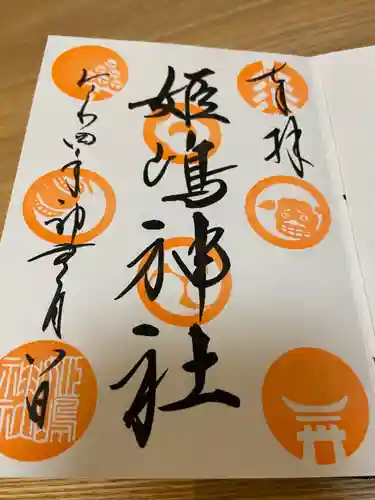 奉拝
姫嶋神社
令和四年神無月八日
姫嶋神社